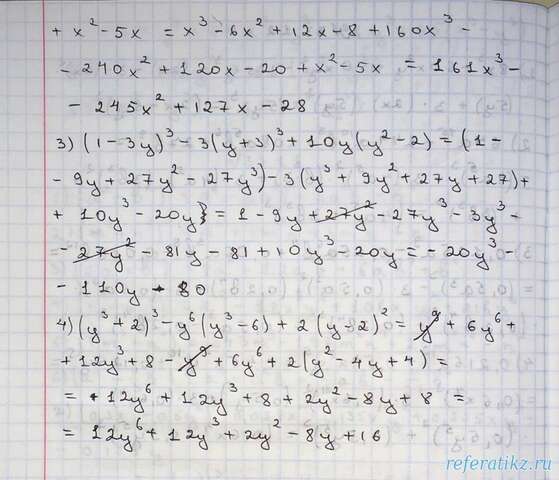 + x² - 5x = x³ - 6x² + 12x - 8 + 160x³ -
- 240x² + 120x - 20 + x² - 5x = 161x³ -
- 245x² + 127x - 28
3) (1 - 3y)³ - 3(y + 3)³ + 10y(y² - 2) = (1 -
- 9y + 27y² - 27y³) - 3(y³ + 9y² + 27y + 27) +
+ 10y³ - 20y} = 1 - 9y + 27y² - 27y³ - 3y³ -
- 27y² - 81y - 81 + 10y³ - 20y = - 20y³ -
- 110y - 80
4) (y³ + 2)³ - y⁶(y³ - 6) + 2(y - 2)² = y⁹ + 6y⁶ +
+ 12y³ + 8 - y⁹ + 6y⁶ + 2(y² - 4y + 4) =
= 12y⁶ + 12y³ + 8 + 2y² - 8y + 8 =
= 12y⁶ + 12y³ + 2y² - 8y + 16
referatikz.ru